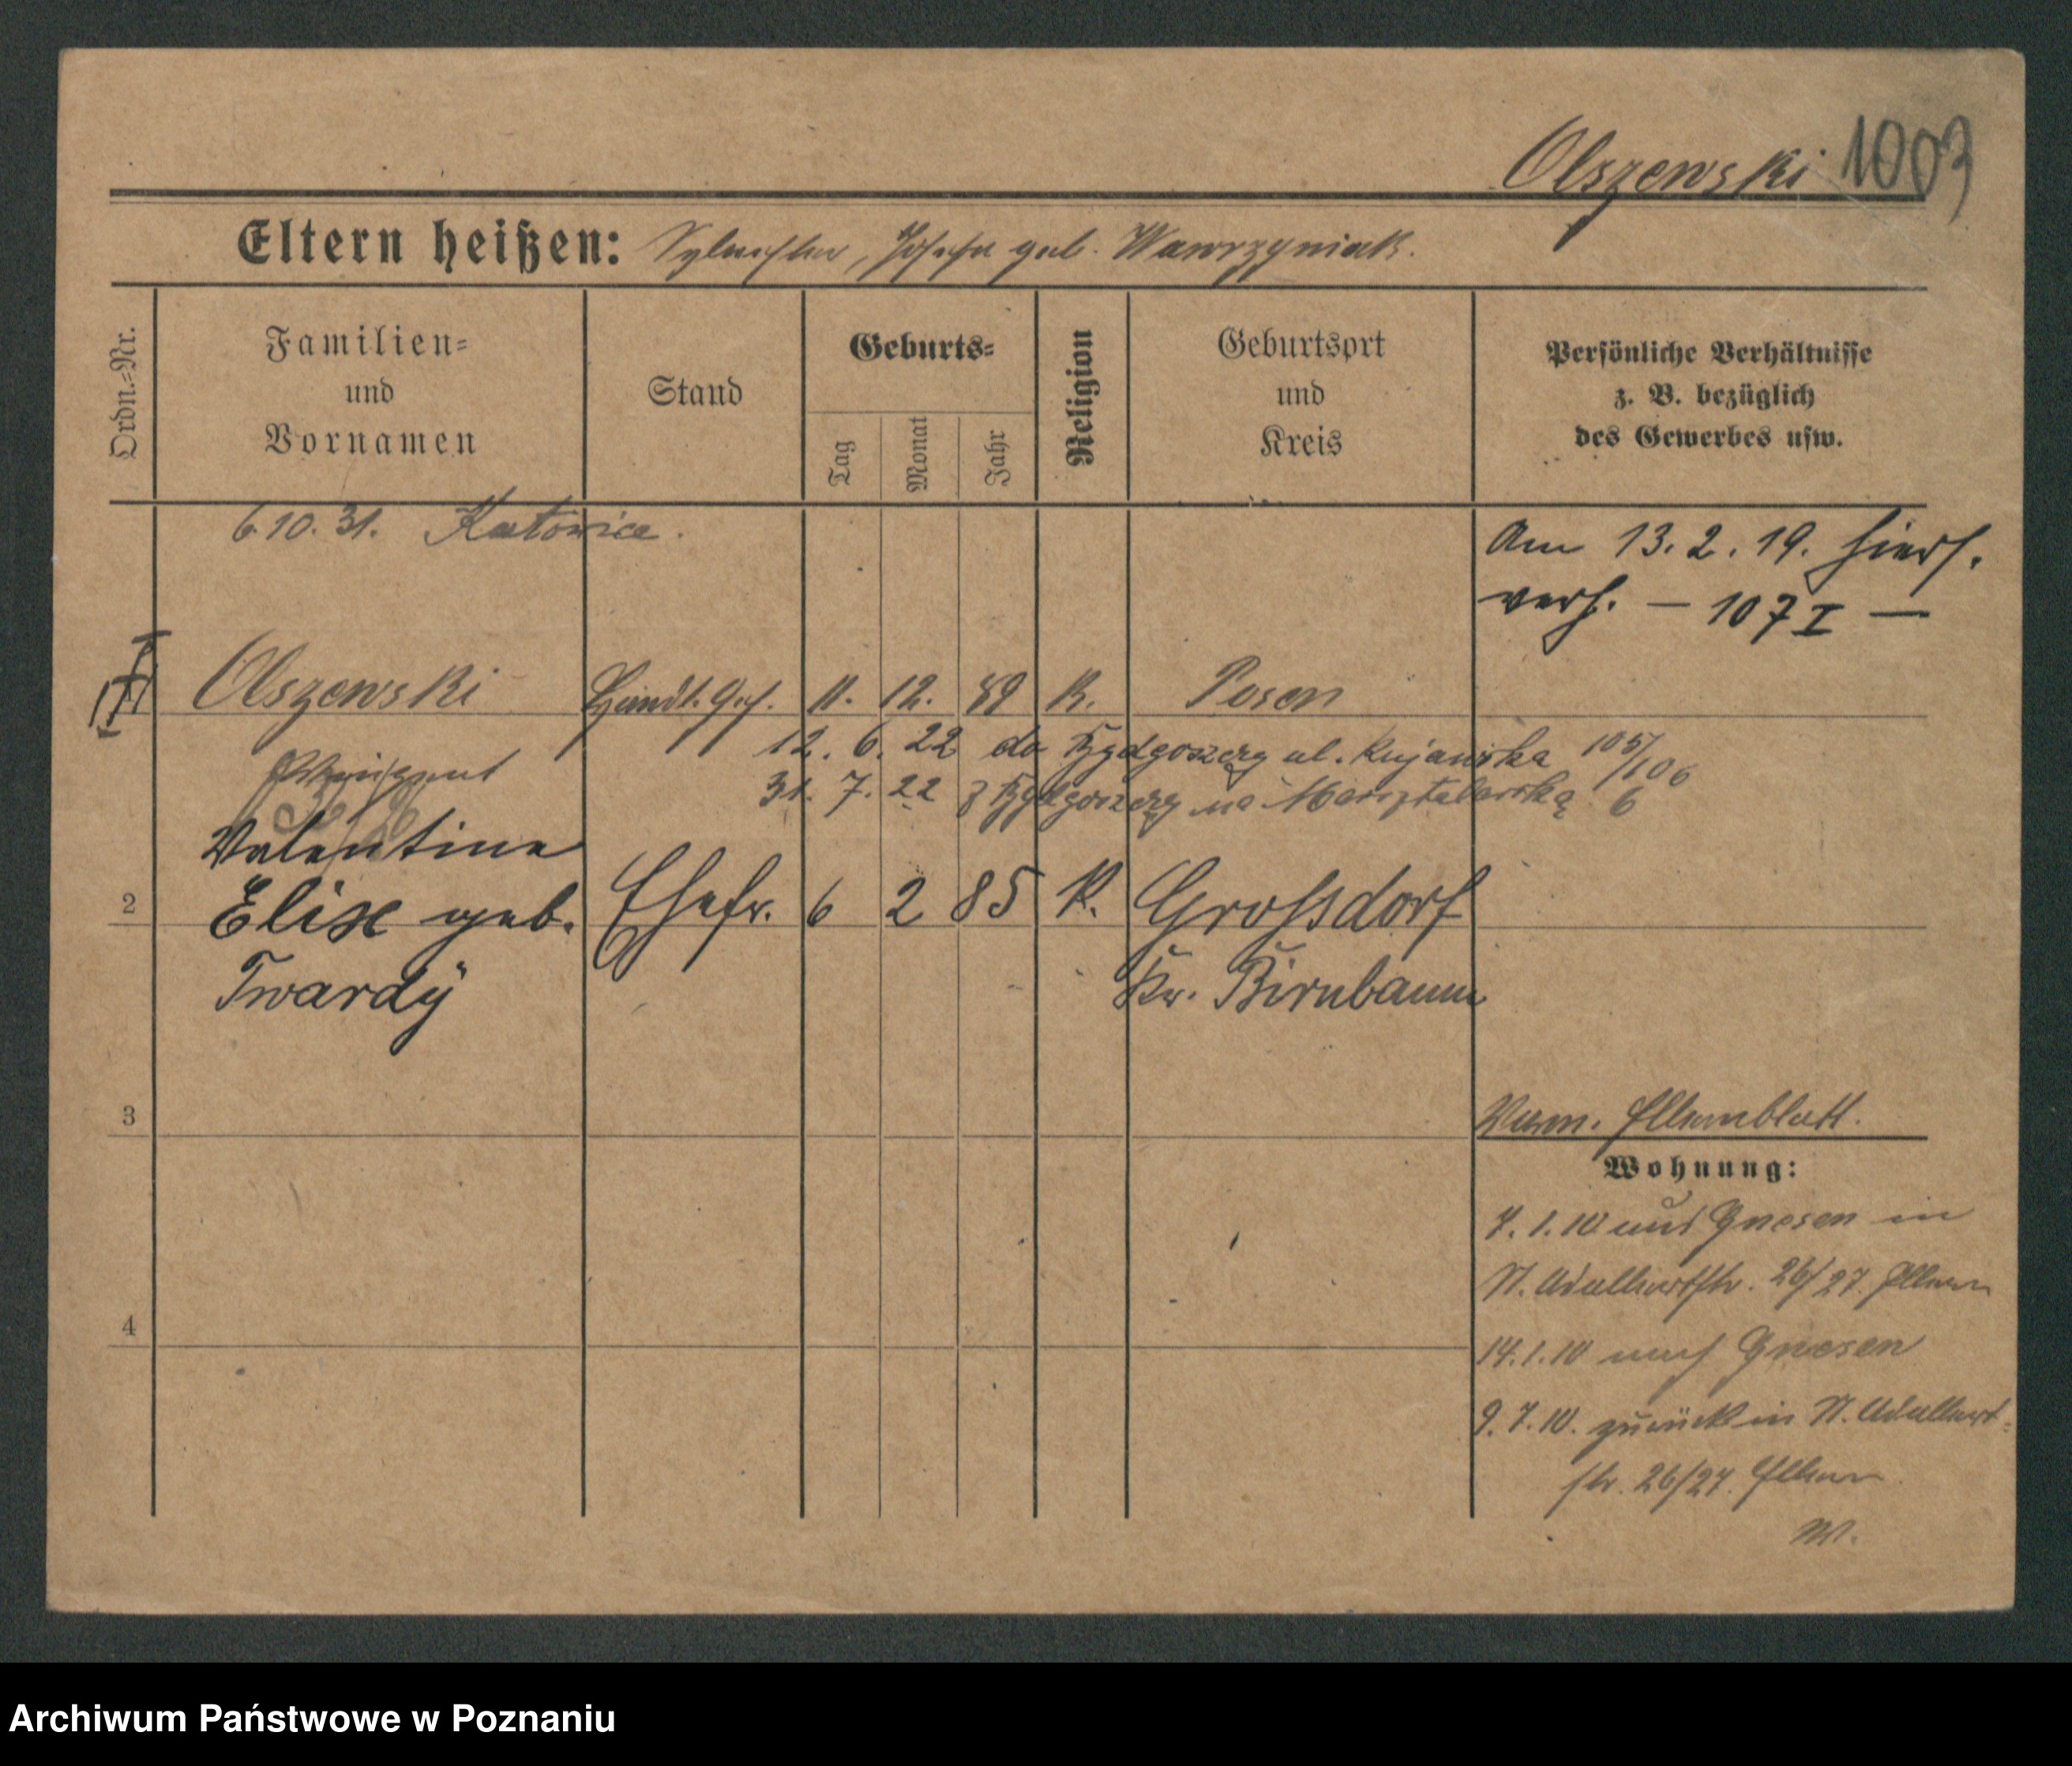 Olszewski 1003
Eltern heißen: Sylvester, Josefa geb. Wawrzyniak.
Ordn.=Nr.
Familien=
und
Vornamen
Stand
Geburts=
Tag
Monat
Jahr
Religion
Geburtsort
und
Kreis
Persönliche Verhältnisse
z. B. bezüglich
des Gewerbes usw.
6.10.31. Katowice.
Am 13.2.19. hiers.
verh. — 107 I —
Olszewski Handl. Geh. 11. 12. 89 K. Posen
12. 6. 22 do Bydgoszczy ul. Kujawska 105/106
31. 7. 22 z Bydgoszczy na Masztalarską 6
Valentine
2 Elise geb. Ehefr. 6 2 85 K. Grossdorf
Twardÿ Kr. Birnbaum
3
Verm. Elternblatt.
Wohnung:
7.1.10 aus Gnesen in
St. Adalbertstr. 26/27. Eltern
4
14.1.10 nach Gnesen
9.7.10. zurück in St. Adalbert-
str. 26/27. Eltern.
Archiwum Państwowe w Poznaniu